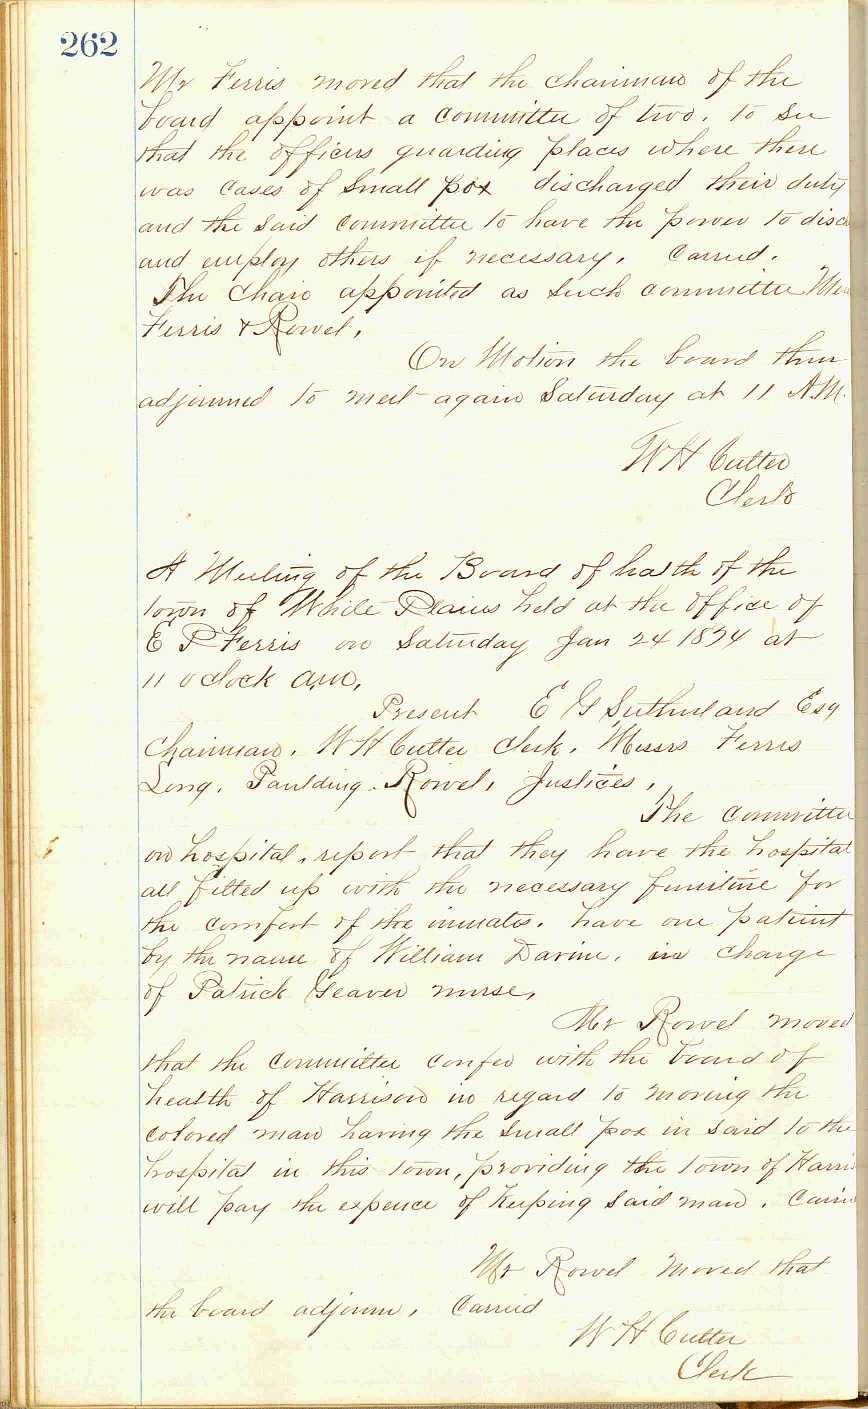 262
Mr Ferris moved that the chairman of the
board appoint a committee of two. to see
that the officers guarding places where there
was cases of small pox discharged their duty
and the said committee to have the power to disc
and employ others if necessary. Carried.
The Chair appointed as such committee
Ferris & Rowel.
On Motion the board then
adjourned to meet again Saturday at 11 A.M.
W H Cutter
Clerk
A Meeting of the Board of halth of the
town of White Plains held at the office of
E P Ferris on Saturday Jan 24 1874 at
11 oclock a.m.
Present E G Sutherland Esq
Chairman. W H Cutter Clerk. Messrs Ferris
Long. Paulding. Rowel. Justices.
The committee
on hospital, report that they have the hospital
all fitted up with the necessary furniture for
the comfort of the inmates. have one patient
by the name of William Davine. in charge
of Patrick Geaver nurse.
Mr Rowel moved
that the committee confer with the board of
health of Harrison in regard to moving the
colored man having the small pox in said to the
hospital in this town, providing the town of Harris
will pay the expence of keeping said man. Carrie
Mr Rowel moved that
the board adjourn. Carried
W H Cutter
Clerk